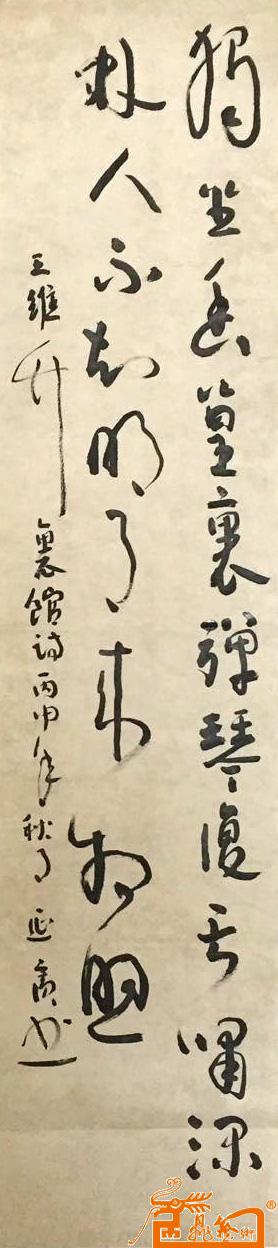 獨坐幽篁裏彈琴復長嘯深
林人不知明月來相照
王維竹裏館詩丙申年秋月延书
®